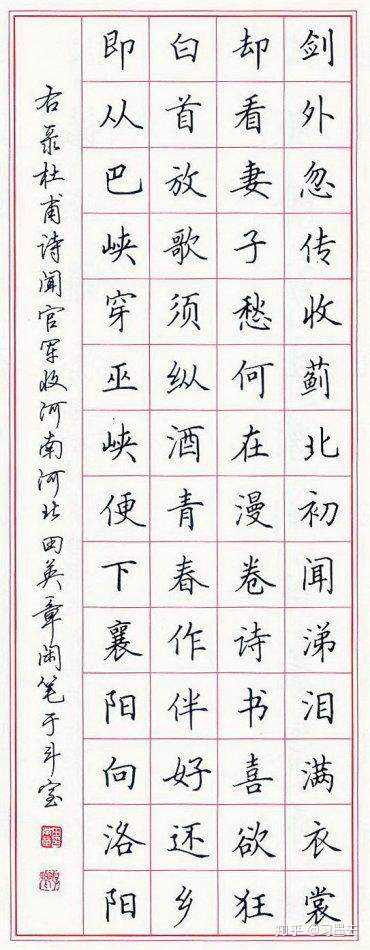 剑外忽传收蓟北初闻涕泪满衣裳
却看妻子愁何在漫卷诗书喜欲狂
白首放歌须纵酒青春作伴好还乡
即从巴峡穿巫峡便下襄阳向洛阳
右录杜甫诗闻官军收河南河北田英章闲笔于斗室
知乎